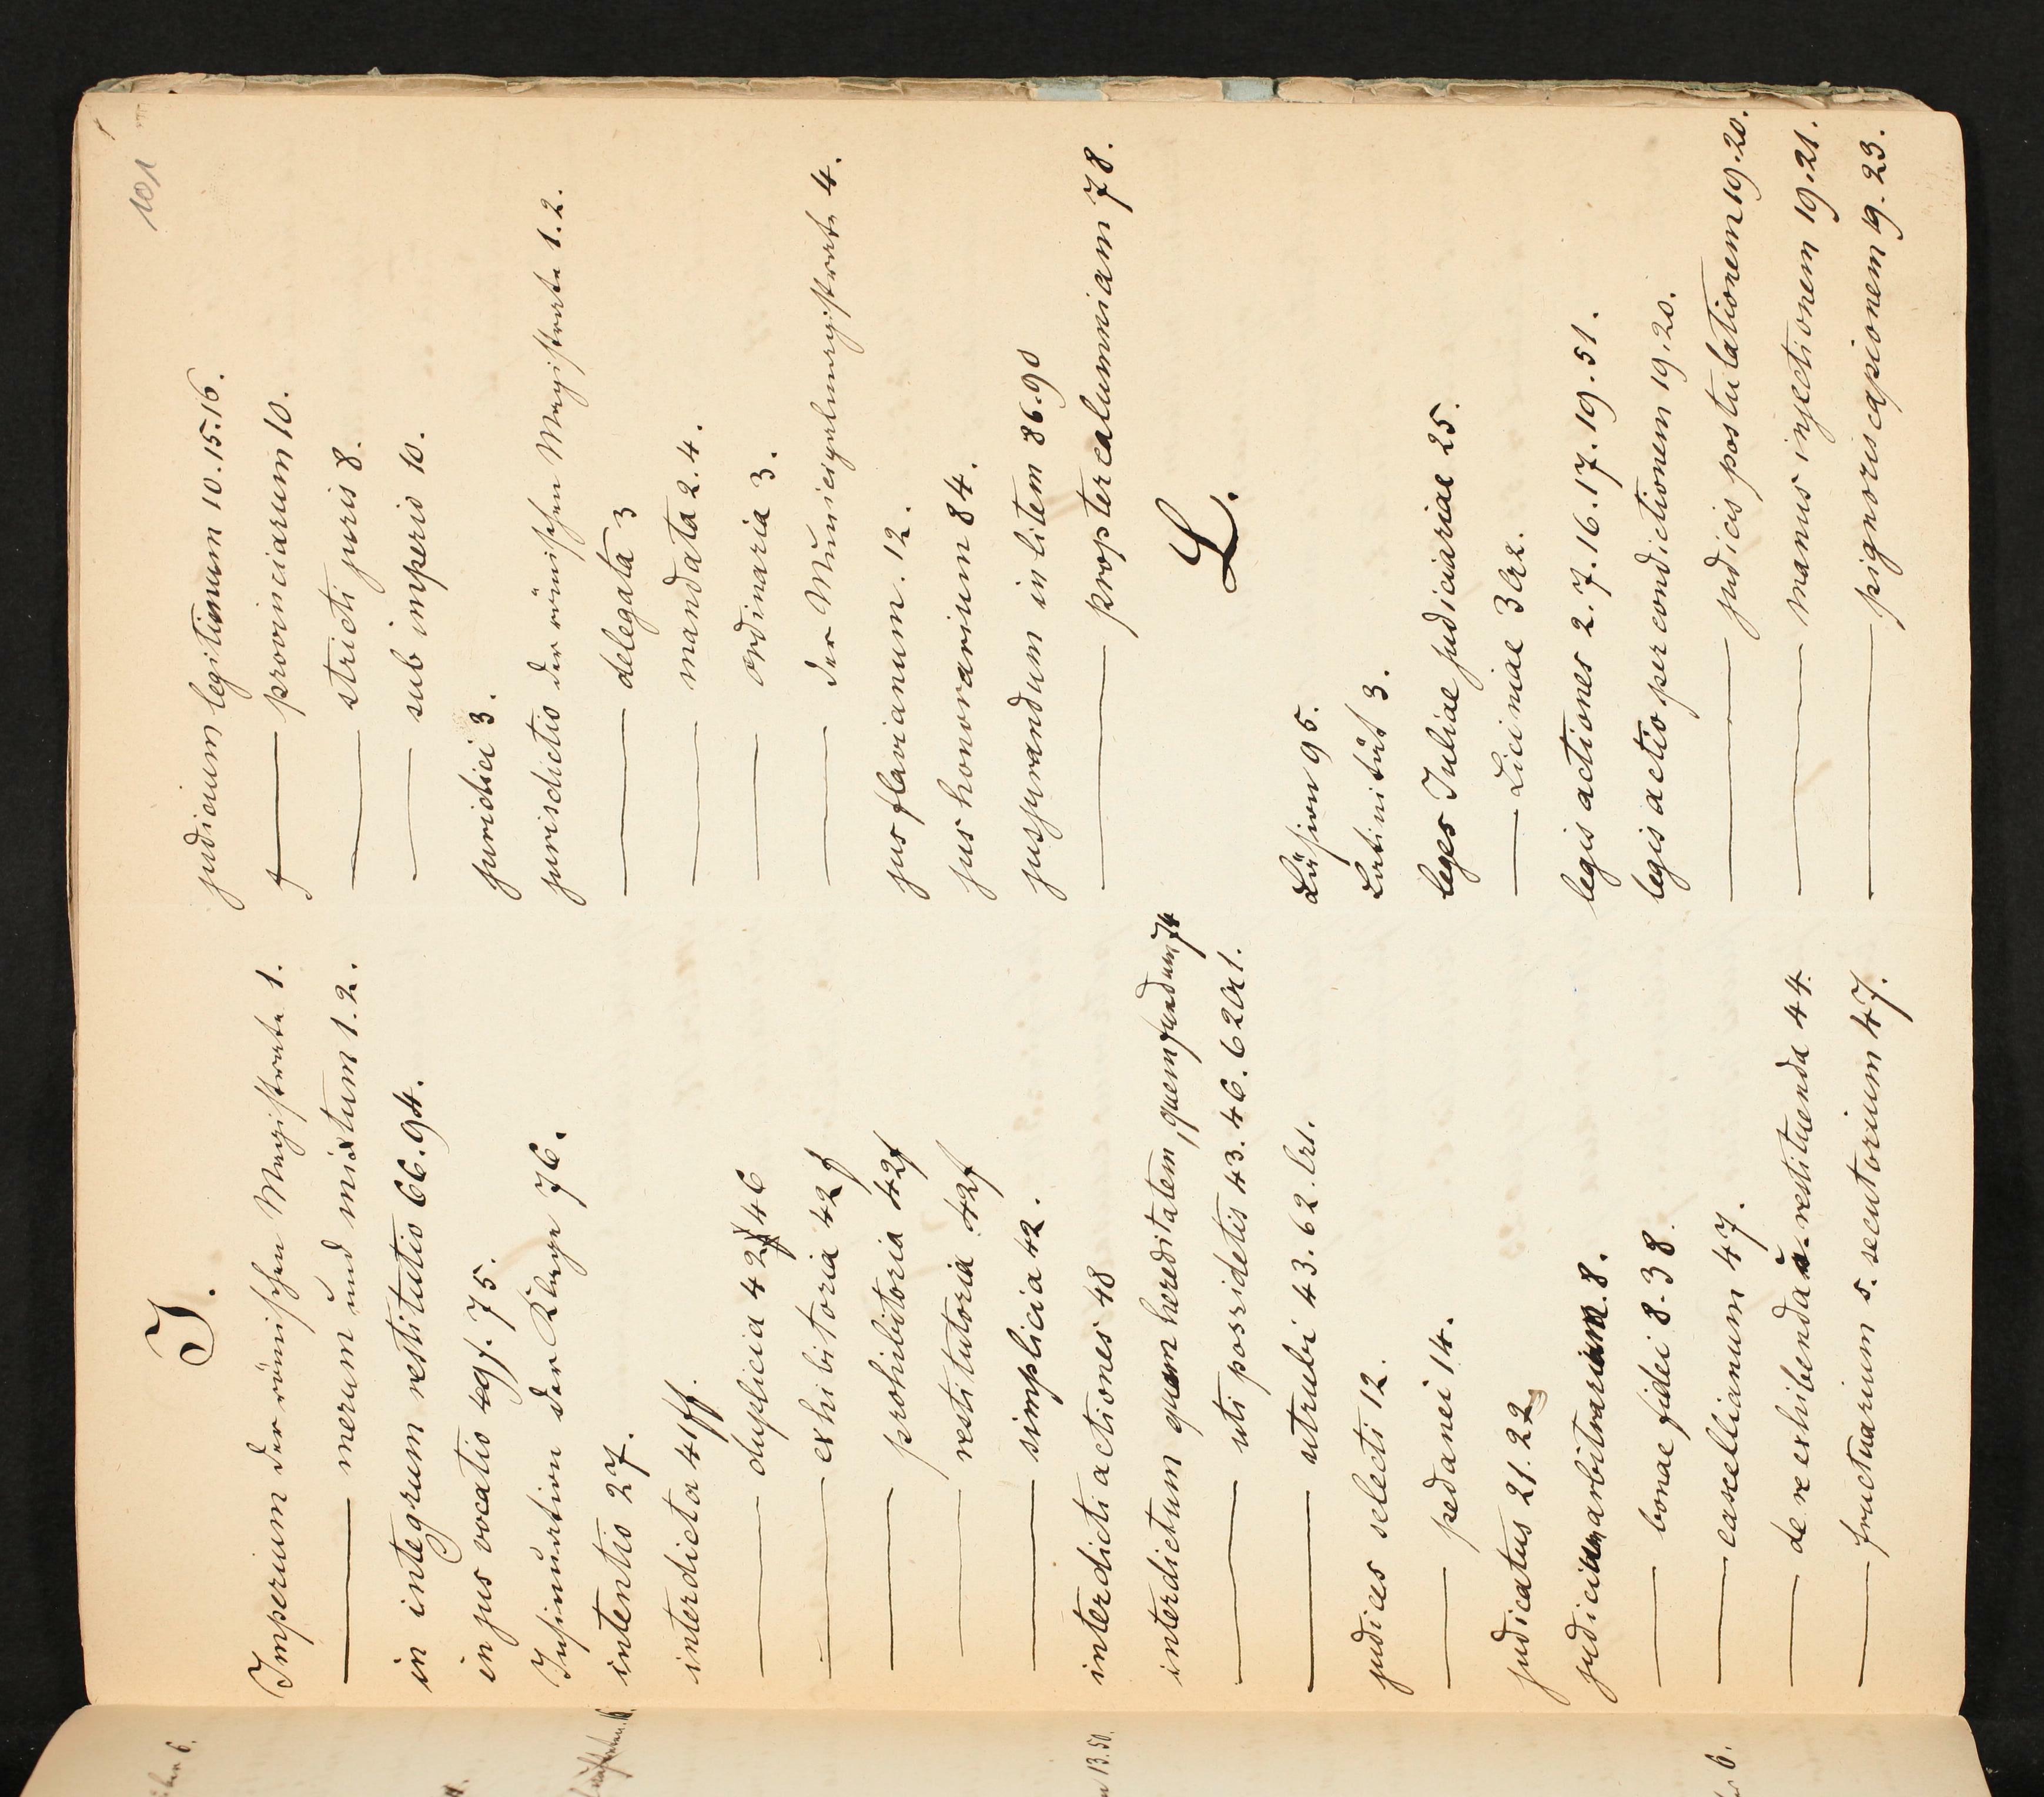 101
I.
Imperium der römischen Magistrate 1.
— merum und mixtum 1. 2.
in integrum restitutio 66. 94.
in jus vocatio 49f. 75.
Insinuation der Klage 76.
intentio 27.
interdicta 41ff.
— duplicia 42 46
— exhibitoria 42f
— prohibitoria 42f
— restitutoria 42f
— simplicia 42.
interdicti actiones 48
interdictum quam hereditatem, quem fundum 74
— uti possidetis 43. 46. 62 Ar1.
— utrubi 43. 62. Ar1.
judices selecti 12.
— pedanei 14.
judicatus 21. 22
judicium arbitrarium. 8.
— bonae fidei 8. 38.
— cascellianum 47.
— de re exhibenda u. restituenda 44.
— fructuarium s. secutorium 47.
judicium legitimum 10. 15. 16.
— provinciarum 10.
— stricti juris 8.
— sub imperio 10.
juridici 3.
jurisdictio der römischen Magistrate 1. 2.
— delegata 3
— mandata 2. 4.
— ordinaria 3.
— der Municipalmagistrate 4.
jus flavianum. 12.
jus honorarium 84.
jusjurandum in litem 86. 90
— propter calumniam 78.
L.
Läsion 95.
Latinität 3.
leges Juliae judiciariae 25.
— Liciniae 3 Ar2.
legis actiones 2. 7. 16. 17. 19. 51.
legis actio per condictionem 19. 20.
— judicis postulationem 19. 20.
— manus injectionem 19. 21.
— pignoris capionem 19. 23.